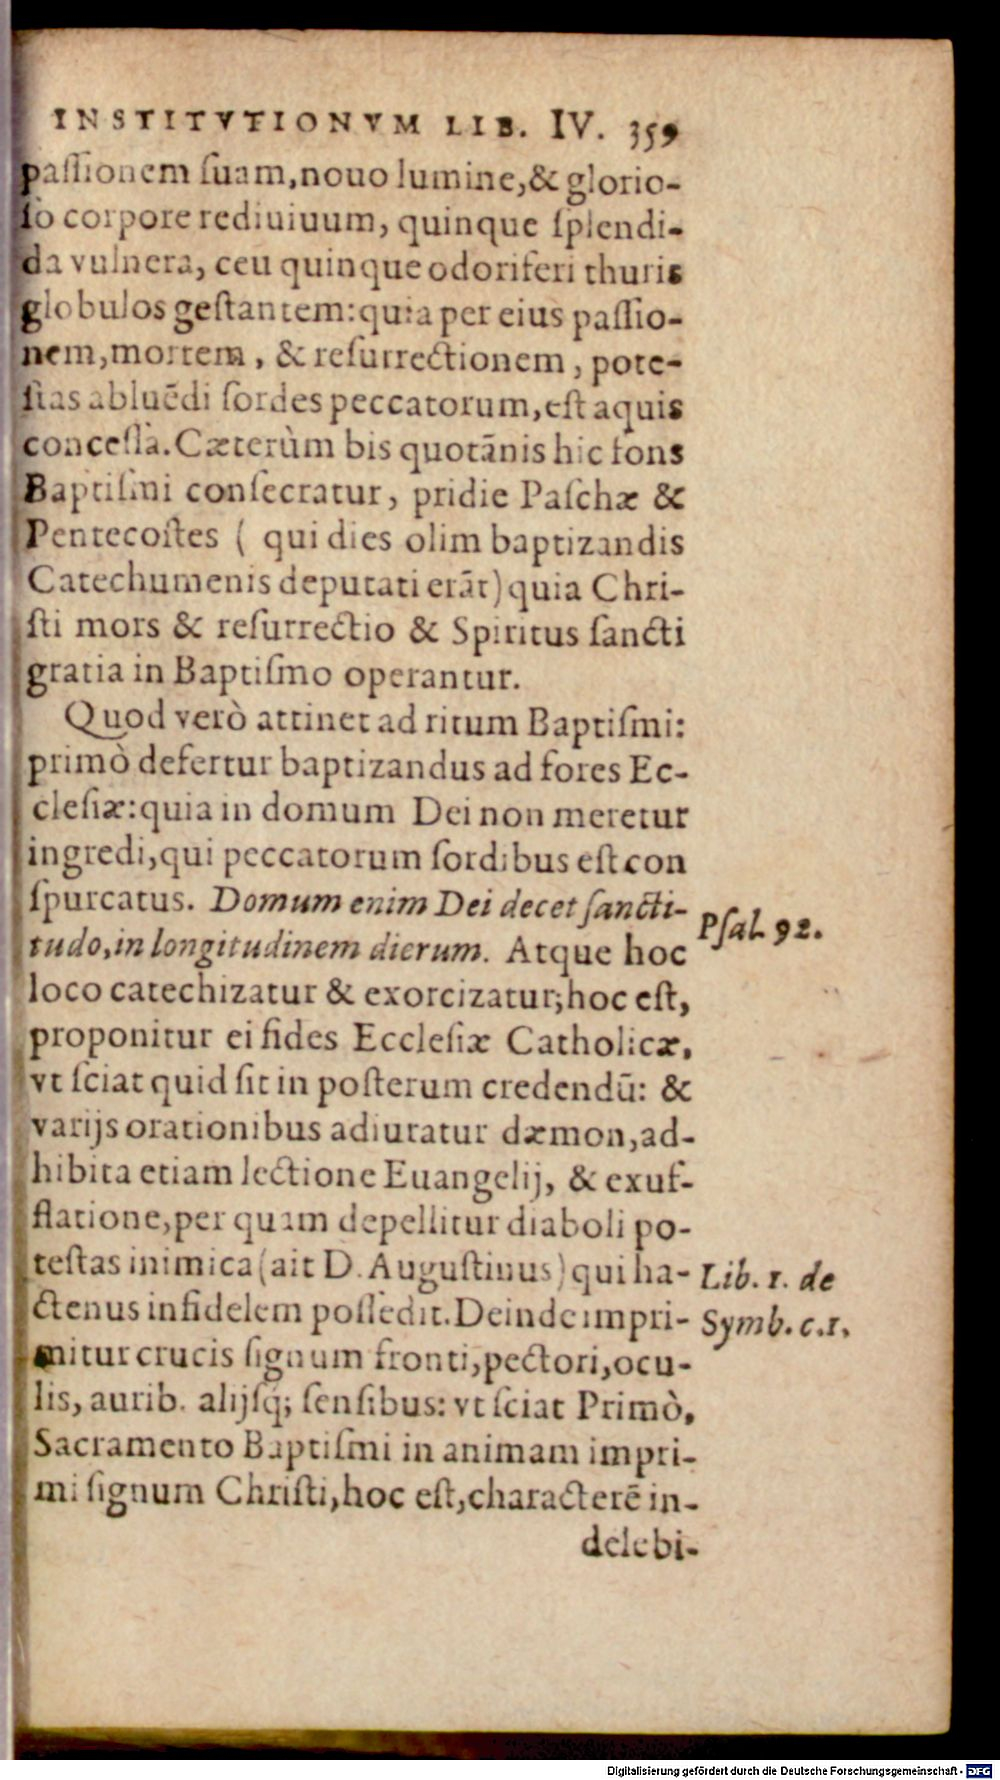 INSTITVTIONVM LIB. IV. 359
paſſionem ſuam,nouo lumine,& glorio-
ſo corpore rediuiuum, quinque ſplendi-
da vulnera, ceu quinque odoriferi thuris
globulos geſtantem:quia per eius paſſio-
nem,mortem, & reſurrectionem, pote-
ſtas abluẽdi ſordes peccatorum,eſt aquis
conceſſa.Cæterùm bis quotãnis hic fons
Baptiſmi conſecratur, pridie Paſchæ &
Pentecoſtes ( qui dies olim baptizandis
Catechumenis deputati erãt) quia Chri-
ſti mors & reſurrectio & Spiritus ſancti
gratia in Baptiſmo operantur.
Quod verò attinet ad ritum Baptiſmi:
primò defertur baptizandus ad fores Ec-
cleſiæ:quia in domum Dei non meretur
ingredi,qui peccatorum ſordibus eſt con
ſpurcatus. Domum enim Dei decet ſancti-
tudo,in longitudinem dierum. Atque hoc
Pſal. 92.
loco catechizatur & exorcizatur;hoc eſt,
proponitur ei fides Eccleſiæ Catholicæ,
vt ſciat quid ſit in poſterum credendũ: &
varijs orationibus adiuratur dæmon,ad-
hibita etiam lectione Euangelij, & exuf-
flatione,per quam depellitur diaboli po-
teſtas inimica (ait D. Auguſtinus) qui ha-
Lib. 1. de
ctenus infidelem poſſedit.Deinde impri-
Symb. c.1.
mitur crucis ſignum fronti,pectori,ocu-
lis, aurib. alijſq; ſenſibus: vt ſciat Primò,
Sacramento Baptiſmi in animam impri-
mi ſignum Chriſti,hoc eſt,characterẽ in-
delebi-
Digitalisierung gefördert durch die Deutsche Forschungsgemeinschaft - DFG